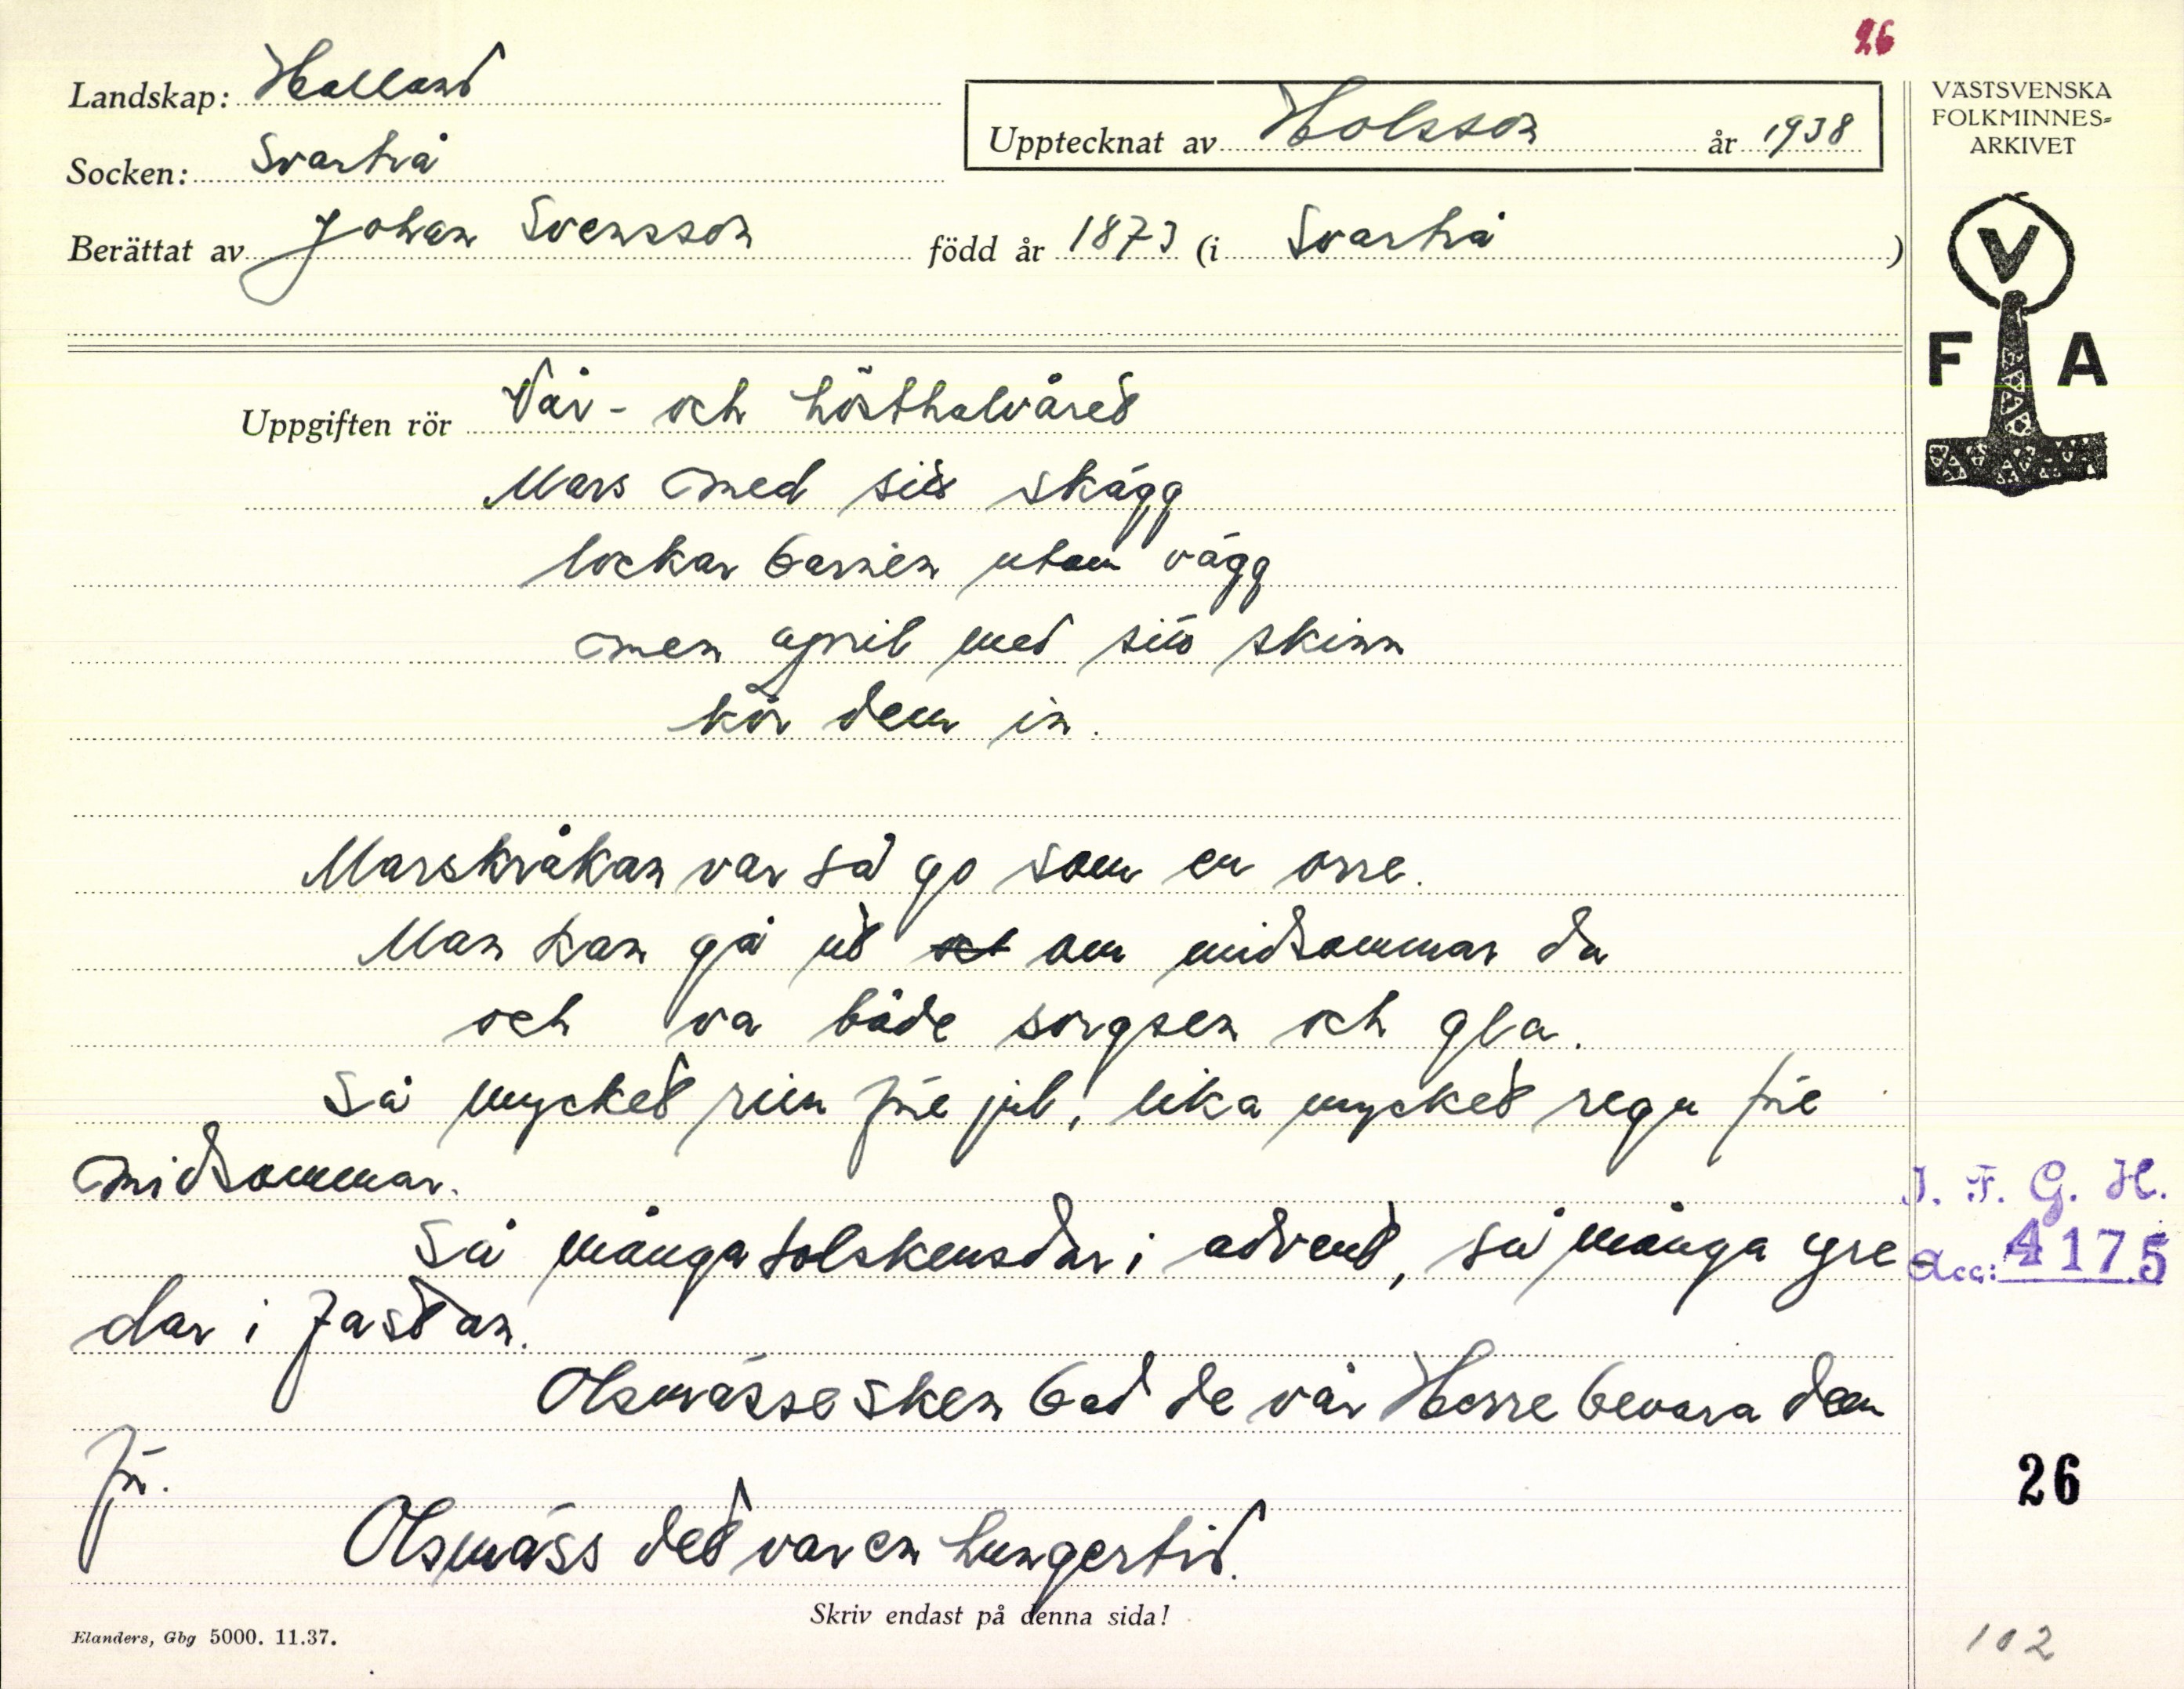 26
Landskap: Halland
Upptecknat av Holsson år 1938
VÄSTSVENSKA
FOLKMINNES-
ARKIVET
Socken: Svartrå
Berättat av Johan Svensson född år 1873 (i Svartrå )
V
F A
Uppgiften rör Vår- och hösthalvåret
Mars med sitt skägg
lockar barnen utom vägg
men april med sitt skinn
kör dem in.
Marskråkan var så go som en orre.
Man kan gå ut om midsommar da
och va både sorgsen och gla.
Så mycket rim före jul, lika mycket regn före
midsommar.
J. F. G. H.
Så många solskensdar i advent, så många gre
Acc: 4175
dar i fastan.
Olsmässesken bad de vår Herre bevara dem
för.
26
Olsmäss det var en hungertid.
Skriv endast på denna sida!
Elanders, Gbg 5000. 11.37.
102